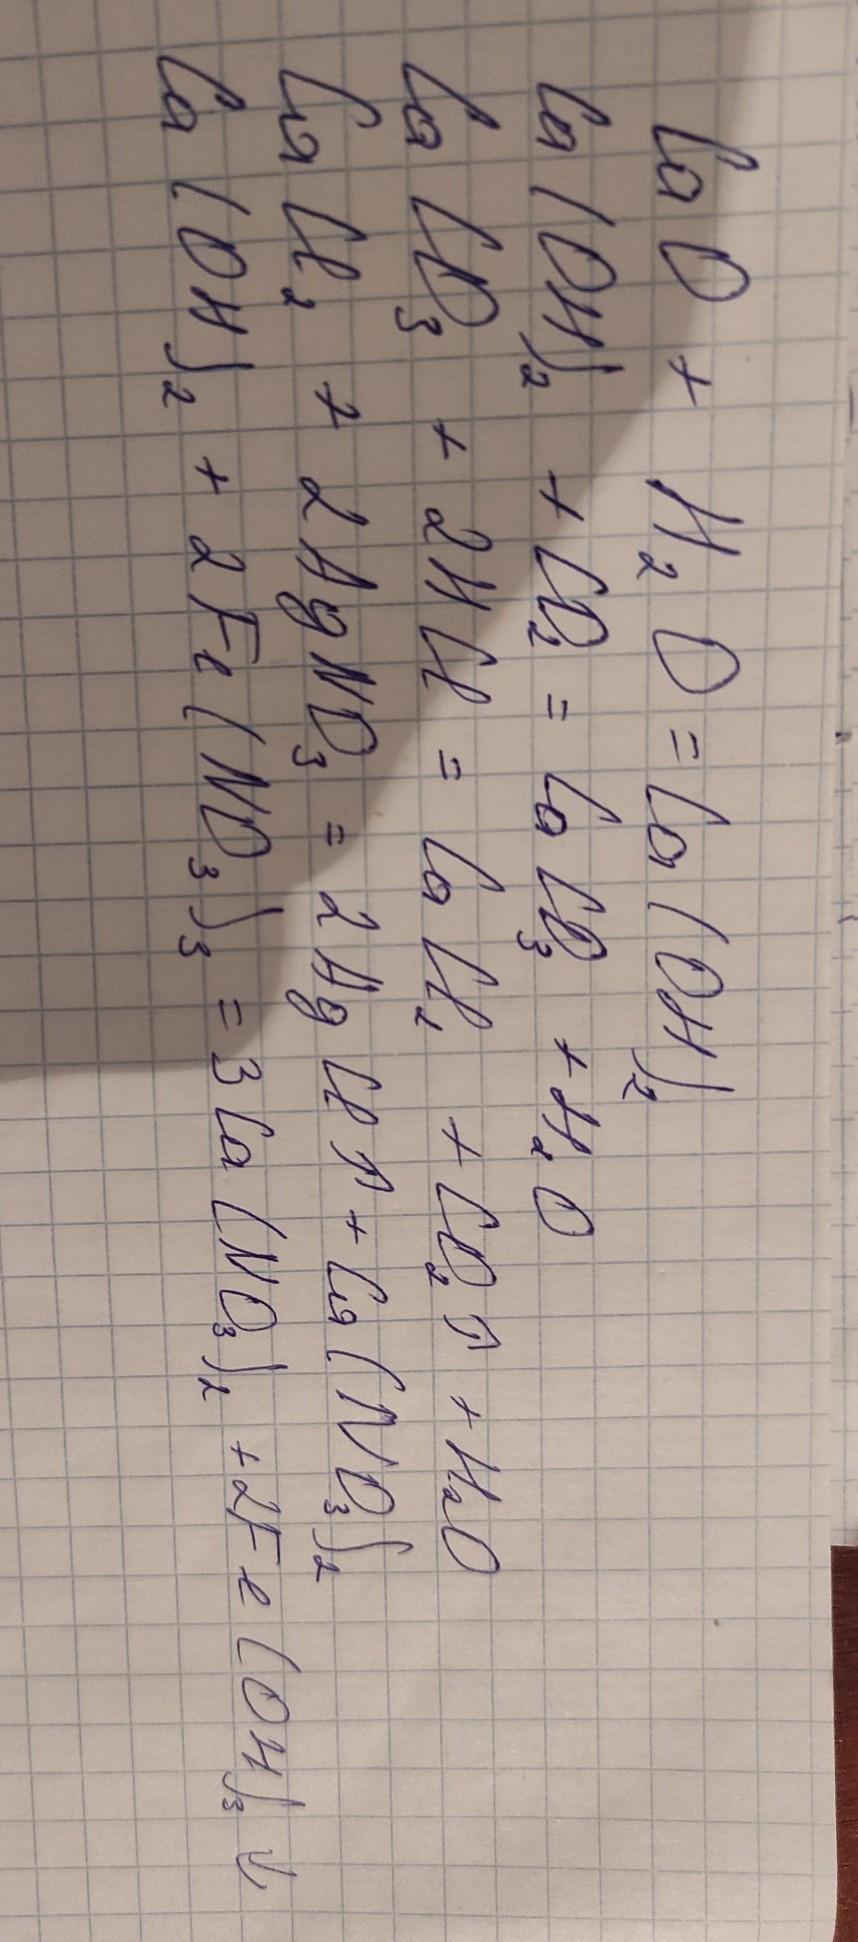 CaO + H₂O = Ca(OH)₂
Ca(OH)₂ + CO₂ = CaCO₃ + H₂O
CaCO₃ + 2HCl = CaCl₂ + CO₂↑ + H₂O
CaCl₂ + 2AgNO₃ = 2AgCl↑ + Ca(NO₃)₂
Ca(OH)₂ + 2Fe(NO₃)₃ = 3Ca(NO₃)₂ + 2Fe(OH)₃↓